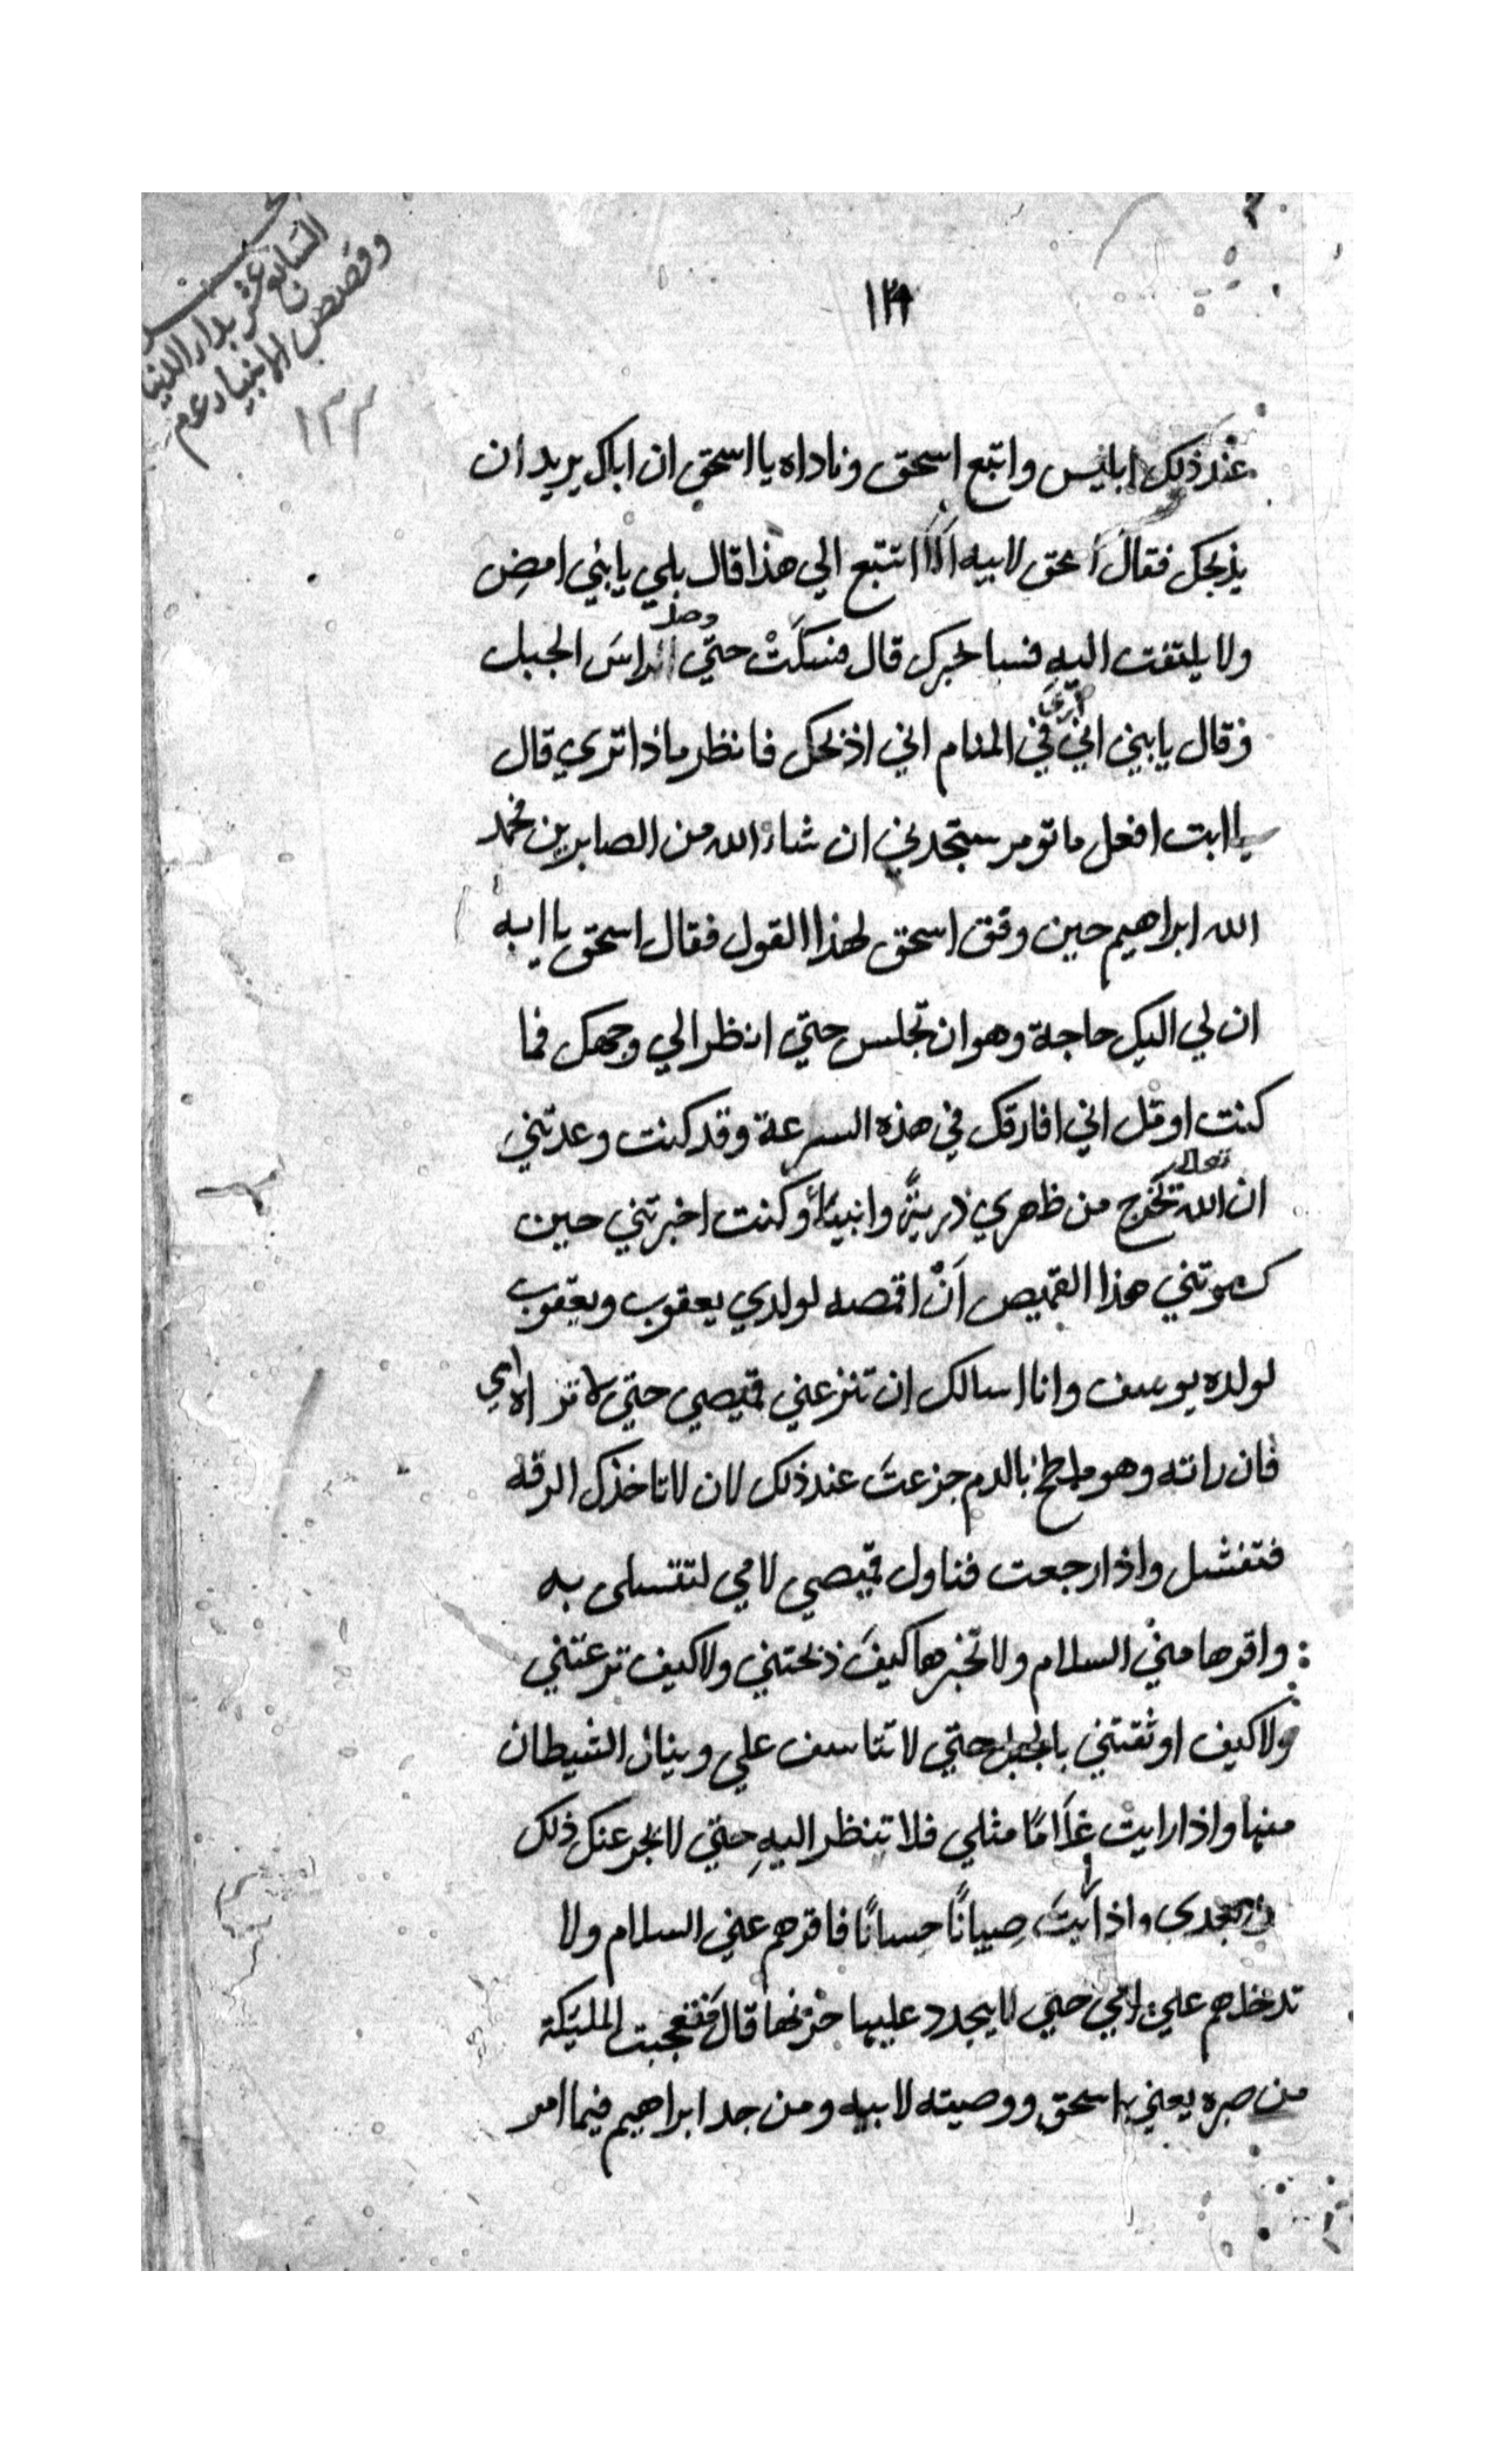 السابع عشر بدار الدنيا
وقصص الانبياء عم
١٣٣
عند ذلك ابليس واتبع اسحق وناداه يا اسحق ان اباك يريد ان
يذبحك فقال اسحق لابيه الا تتبع الي هذا قال بلي يا بني امض
ولا يلتفت اليه قال فسكت حتي وصلا راس الجبل
وقال يا بني اني اري في المنام اني اذبحك فانظر ماذا تري قال
يا ابت افعل ما تومر ستجدني ان شاء الله من الصابرين فحمد
الله ابراهيم حين وفق اسحق لهذا القول فقال اسحق يا ابه
ان لي اليك حاجة وهو ان تجلس حتي انظر الي وجهك فما
كنت اومل اني افارقك في هذه السرعة وقد كنت وعدتني
ان الله تعالي يخرج من ظهري ذريةً وانبياءً وكنت اخبرتني حين
كسوتني هذا القميص اَنْ اقمصه لولدي يعقوب ويعقوب
لولده يوسف وانا اسالك ان تنزعني قميصي حتي لا تراه امي
فان راته وهو ملطخ بالدم جزعت عند ذلك لان لا تاخذك الرقه
فتفشل واذا رجعت فناول قميصي لامي لتتسلى به
واقرها مني السلام ولا تخبرها كيفَ ذبحتني ولا كيف نزعتني
ولا كيف اوثقتني بالحبل حتي لا تتاسف علي وينال الشيطان
منها واذا رايت غلامًا مثلي فلا تنظر اليهِ حتي لا يجزعنك ذلك
من بعدي واذا رايتَ صبيانًا حِسانًا فاقرهم عني السلام ولا
تدخلهم علي امي حتي لا يجدد عليها حزنها قال فتعجبت المليكة
من صبره يعني اسحق ووصيته لابيه ومن جد ابراهيم فيما امر